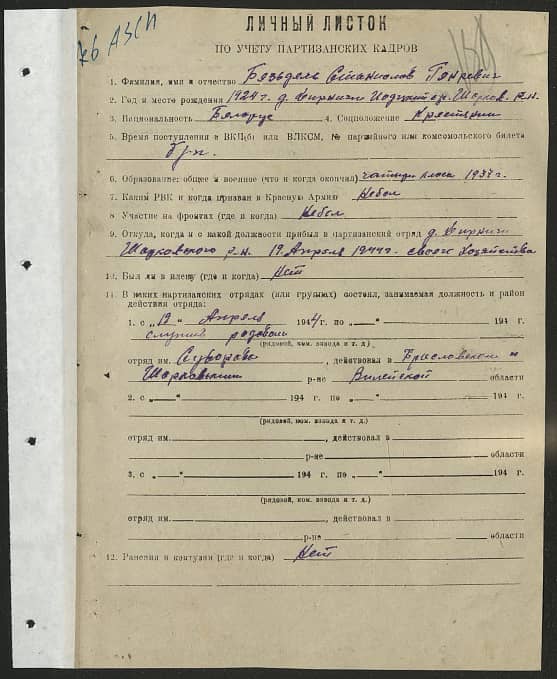 ЛИЧНЫЙ ЛИСТОК
ПО УЧЕТУ ПАРТИЗАНСКИХ КАДРОВ
1. Фамилия, имя и отчество Бяздель Станислов Генревич
2. Год и место рождения 1924 г. д. р.н.
3. Национальность Белорус 4. Соцположение Крестьянин
5. Время поступления в ВКП(б) или ВЛКСМ, № партийного или комсомольского билета
б/п.
6. Образование: общее и военное (что и когда окончил) класа 1937 г.
7. Каким РВК и когда призван в Красную Армию Небыл
8 Участие на фронтах (где и когда) Небыл
9. Откуда, когда и с какой должности прибыл в партизанский отряд д.
Шарковского р-н. 19 Апреля 1944 г. своего хозяйства
10. Был ли в плену (где и когда) Нет
11. В каких партизанских отрядах (или группах) состоял, занимаемая должность и район
действия отряда:
1. с „19“ Апреля 1944 г. по „ “ 194 г.
служив рядовой
(рядовой, ком. взвода и т. д.)
отряд им. Суворова, действовал в Браславском и
Шарковшин р-не Вилейской области
2. с „ “ 194 г. по „ “ 194 г.
(рядовой, ком. взвода и т. д.)
отряд им. , действовал в
р-не области
3. с „ “ 194 г. по „ “ 194 г.
(рядовой, ком. взвода и т. д.)
отряд им. , действовал в
р-не области
12. Ранения и контузии (где и когда) Нет